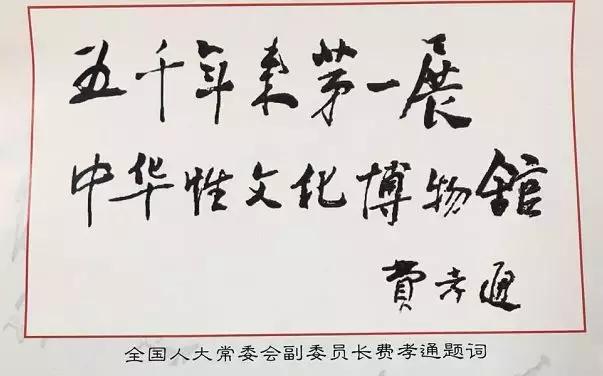 五千年来第一展
中华性文化博物馆
费孝通
全国人大常委会副委员长费孝通题词